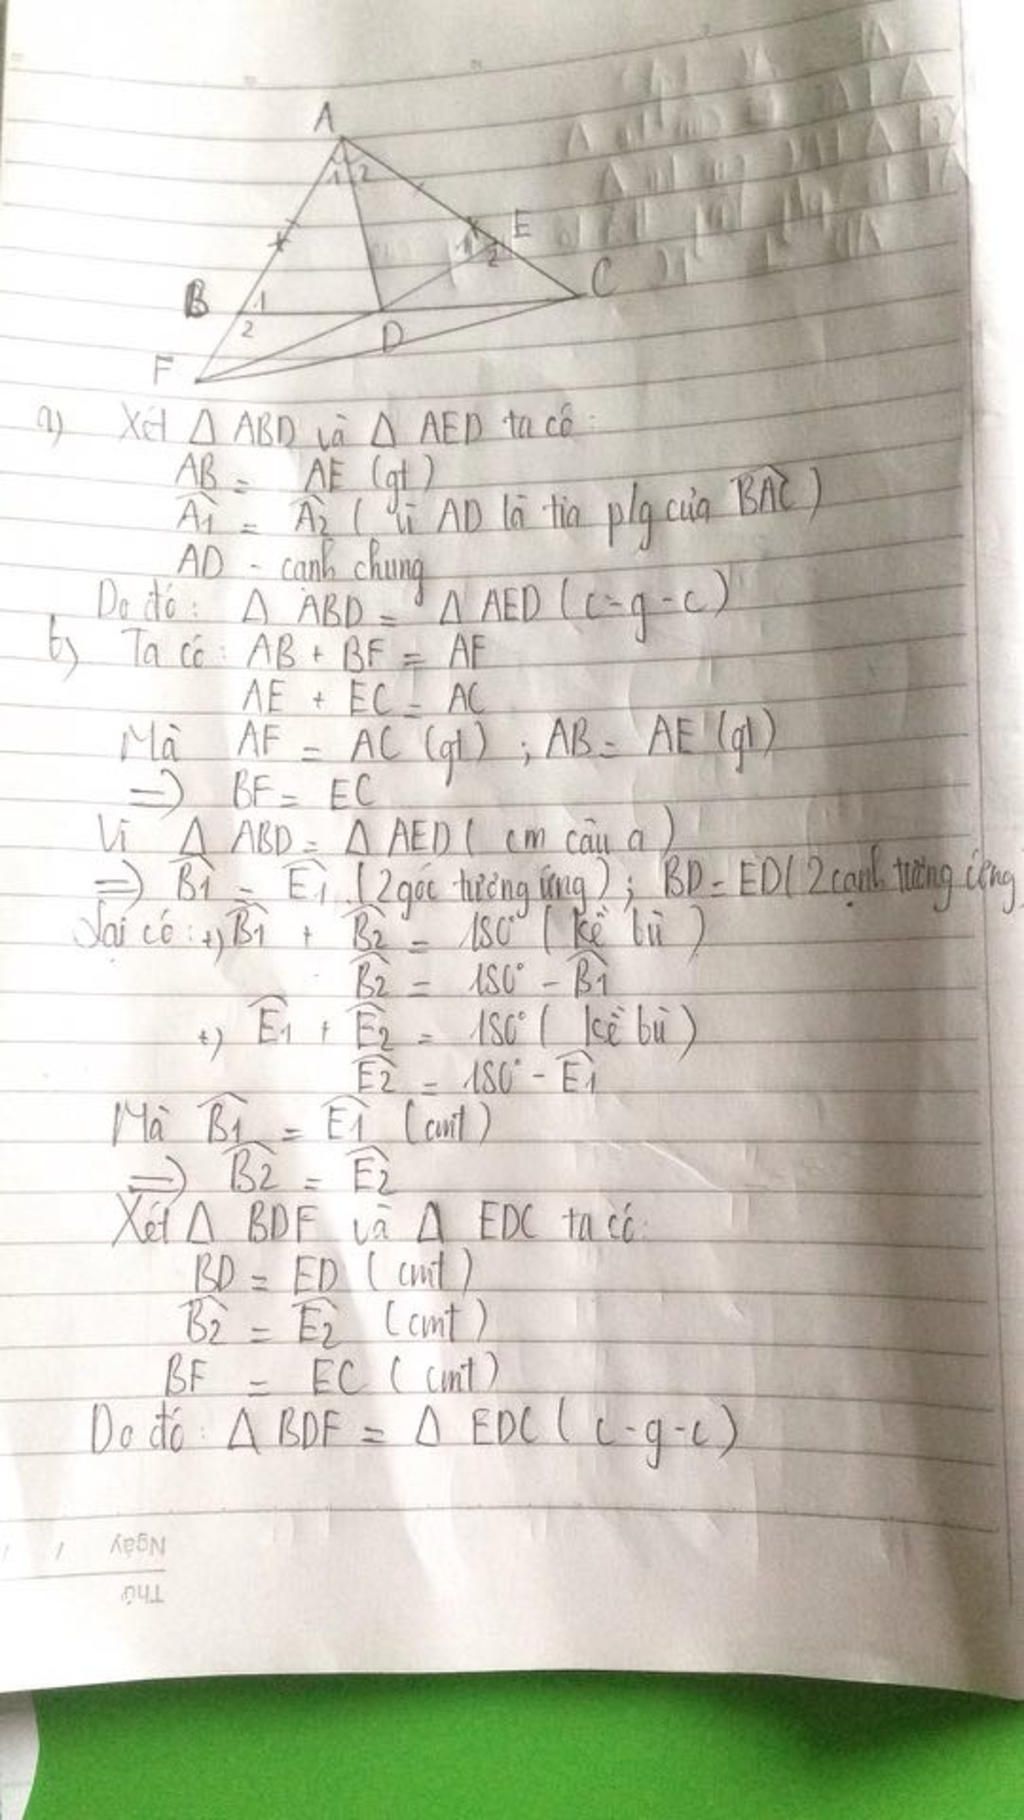 A
1 2
E
1
2
B
1
C
2
D
F
a) Xét Δ ABD và Δ AED ta có:
AB = AE (gt)
Â1 = Â2 ( vì AD là tia p/g của BAC )
AD - cạnh chung
Do đó: Δ ABD = Δ AED ( c-g-c)
b) Ta có: AB + BF = AF
AE + EC = AC
Mà AF = AC (gt) ; AB = AE (gt)
=> BF = EC
Vì Δ ABD = Δ AED ( cm câu a )
=> B̂1 = Ê1 (2 góc tương ứng) ; BD = ED ( 2 cạnh tương ứng)
Lại có: +) B̂1 + B̂2 = 180° ( kề bù )
B̂2 = 180° - B̂1
+) Ê1 + Ê2 = 180° ( kề bù )
Ê2 = 180° - Ê1
Mà B̂1 = Ê1 (cmt)
=> B̂2 = Ê2
Xét Δ BDF và Δ EDC ta có:
BD = ED ( cmt )
B̂2 = Ê2 (cmt)
BF = EC ( cmt )
Do đó: Δ BDF = Δ EDC ( c-g-c )
Ngày / /
Thứ